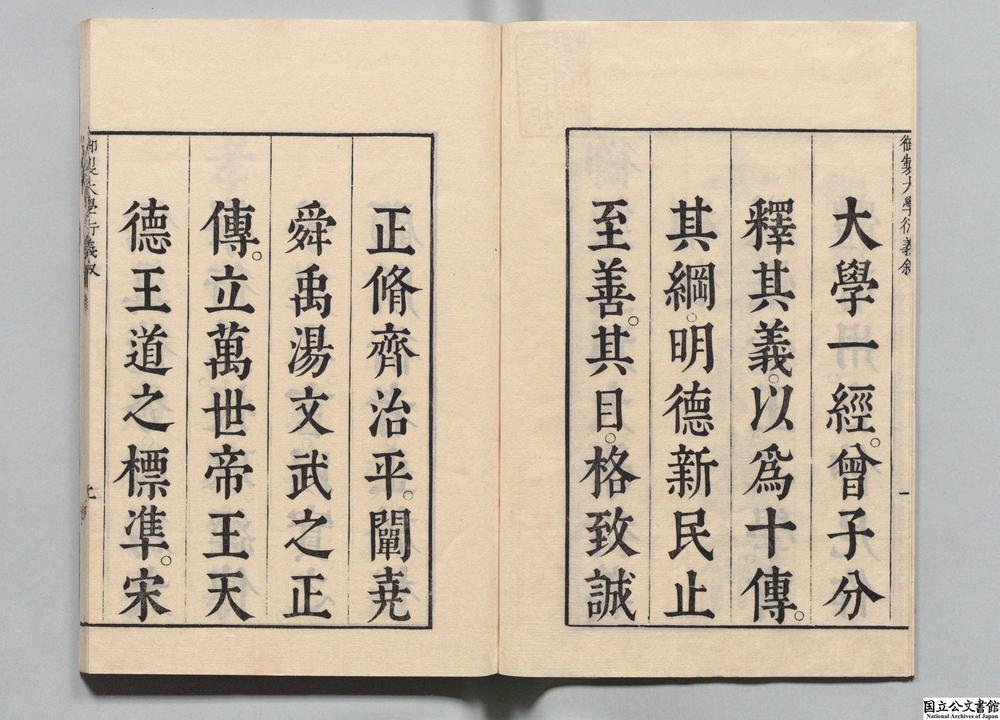 御製大學衍義叙
一
大學一經。曾子分
釋其義。以爲十傳。
其綱。明德新民止
至善。其目。格致誠
正脩齊治平。闡堯
舜禹湯文。武之正
傳。立萬世帝王天
德王道之標準。宋
御製大學衍義叙
国立公文書館
National Archives of Japan